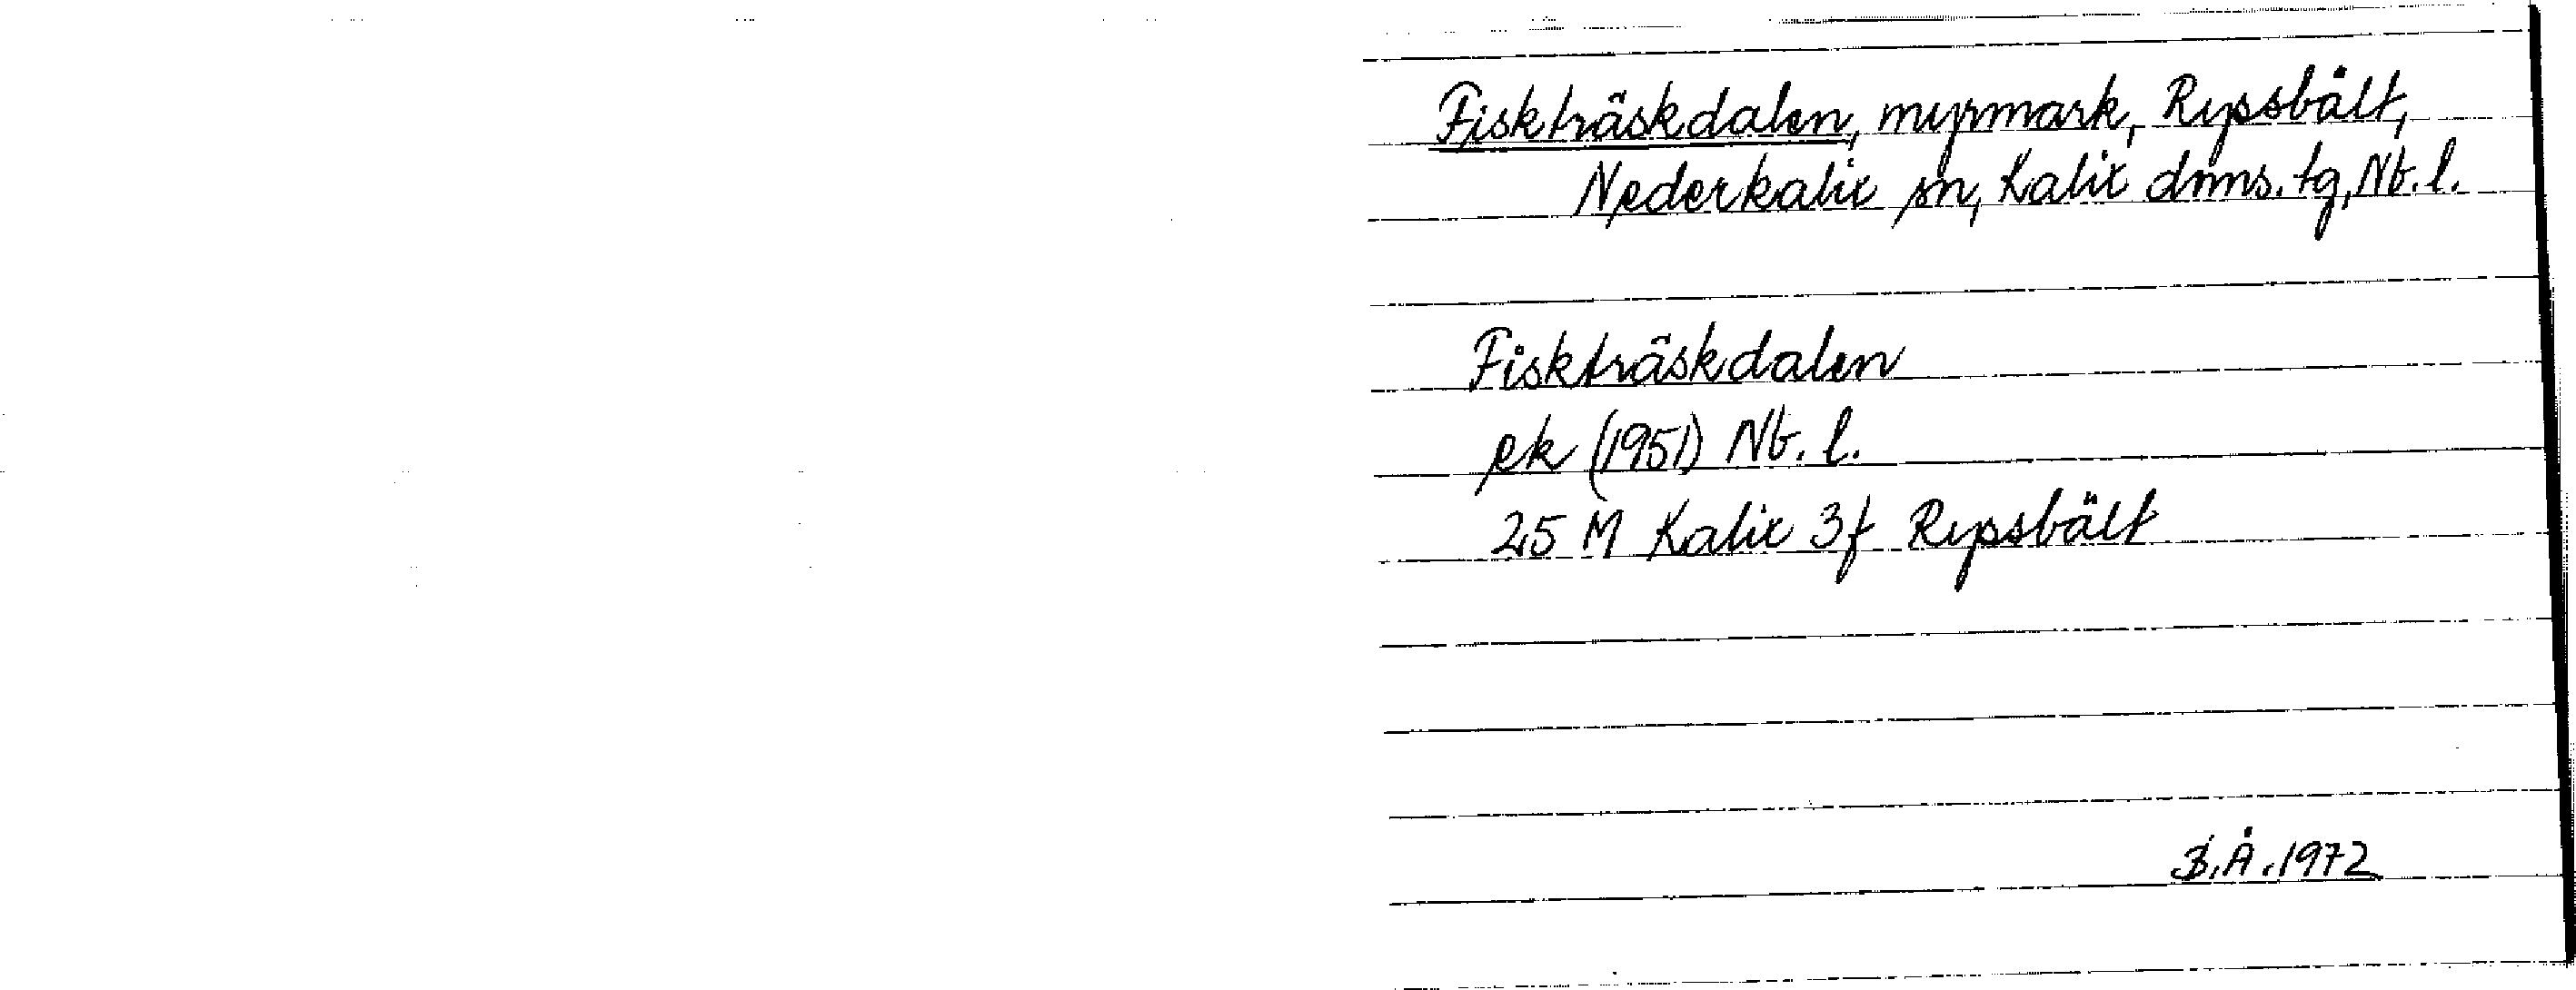 Fiskträskdalen, myrmark, Rypsbält,
Nederkalix sn, Kalix dnms. tg, Nb. l.
Fiskträskdalen
ek (1951) Nb. l.
25 M Kalix 3f Rypsbält
B.Å.1972